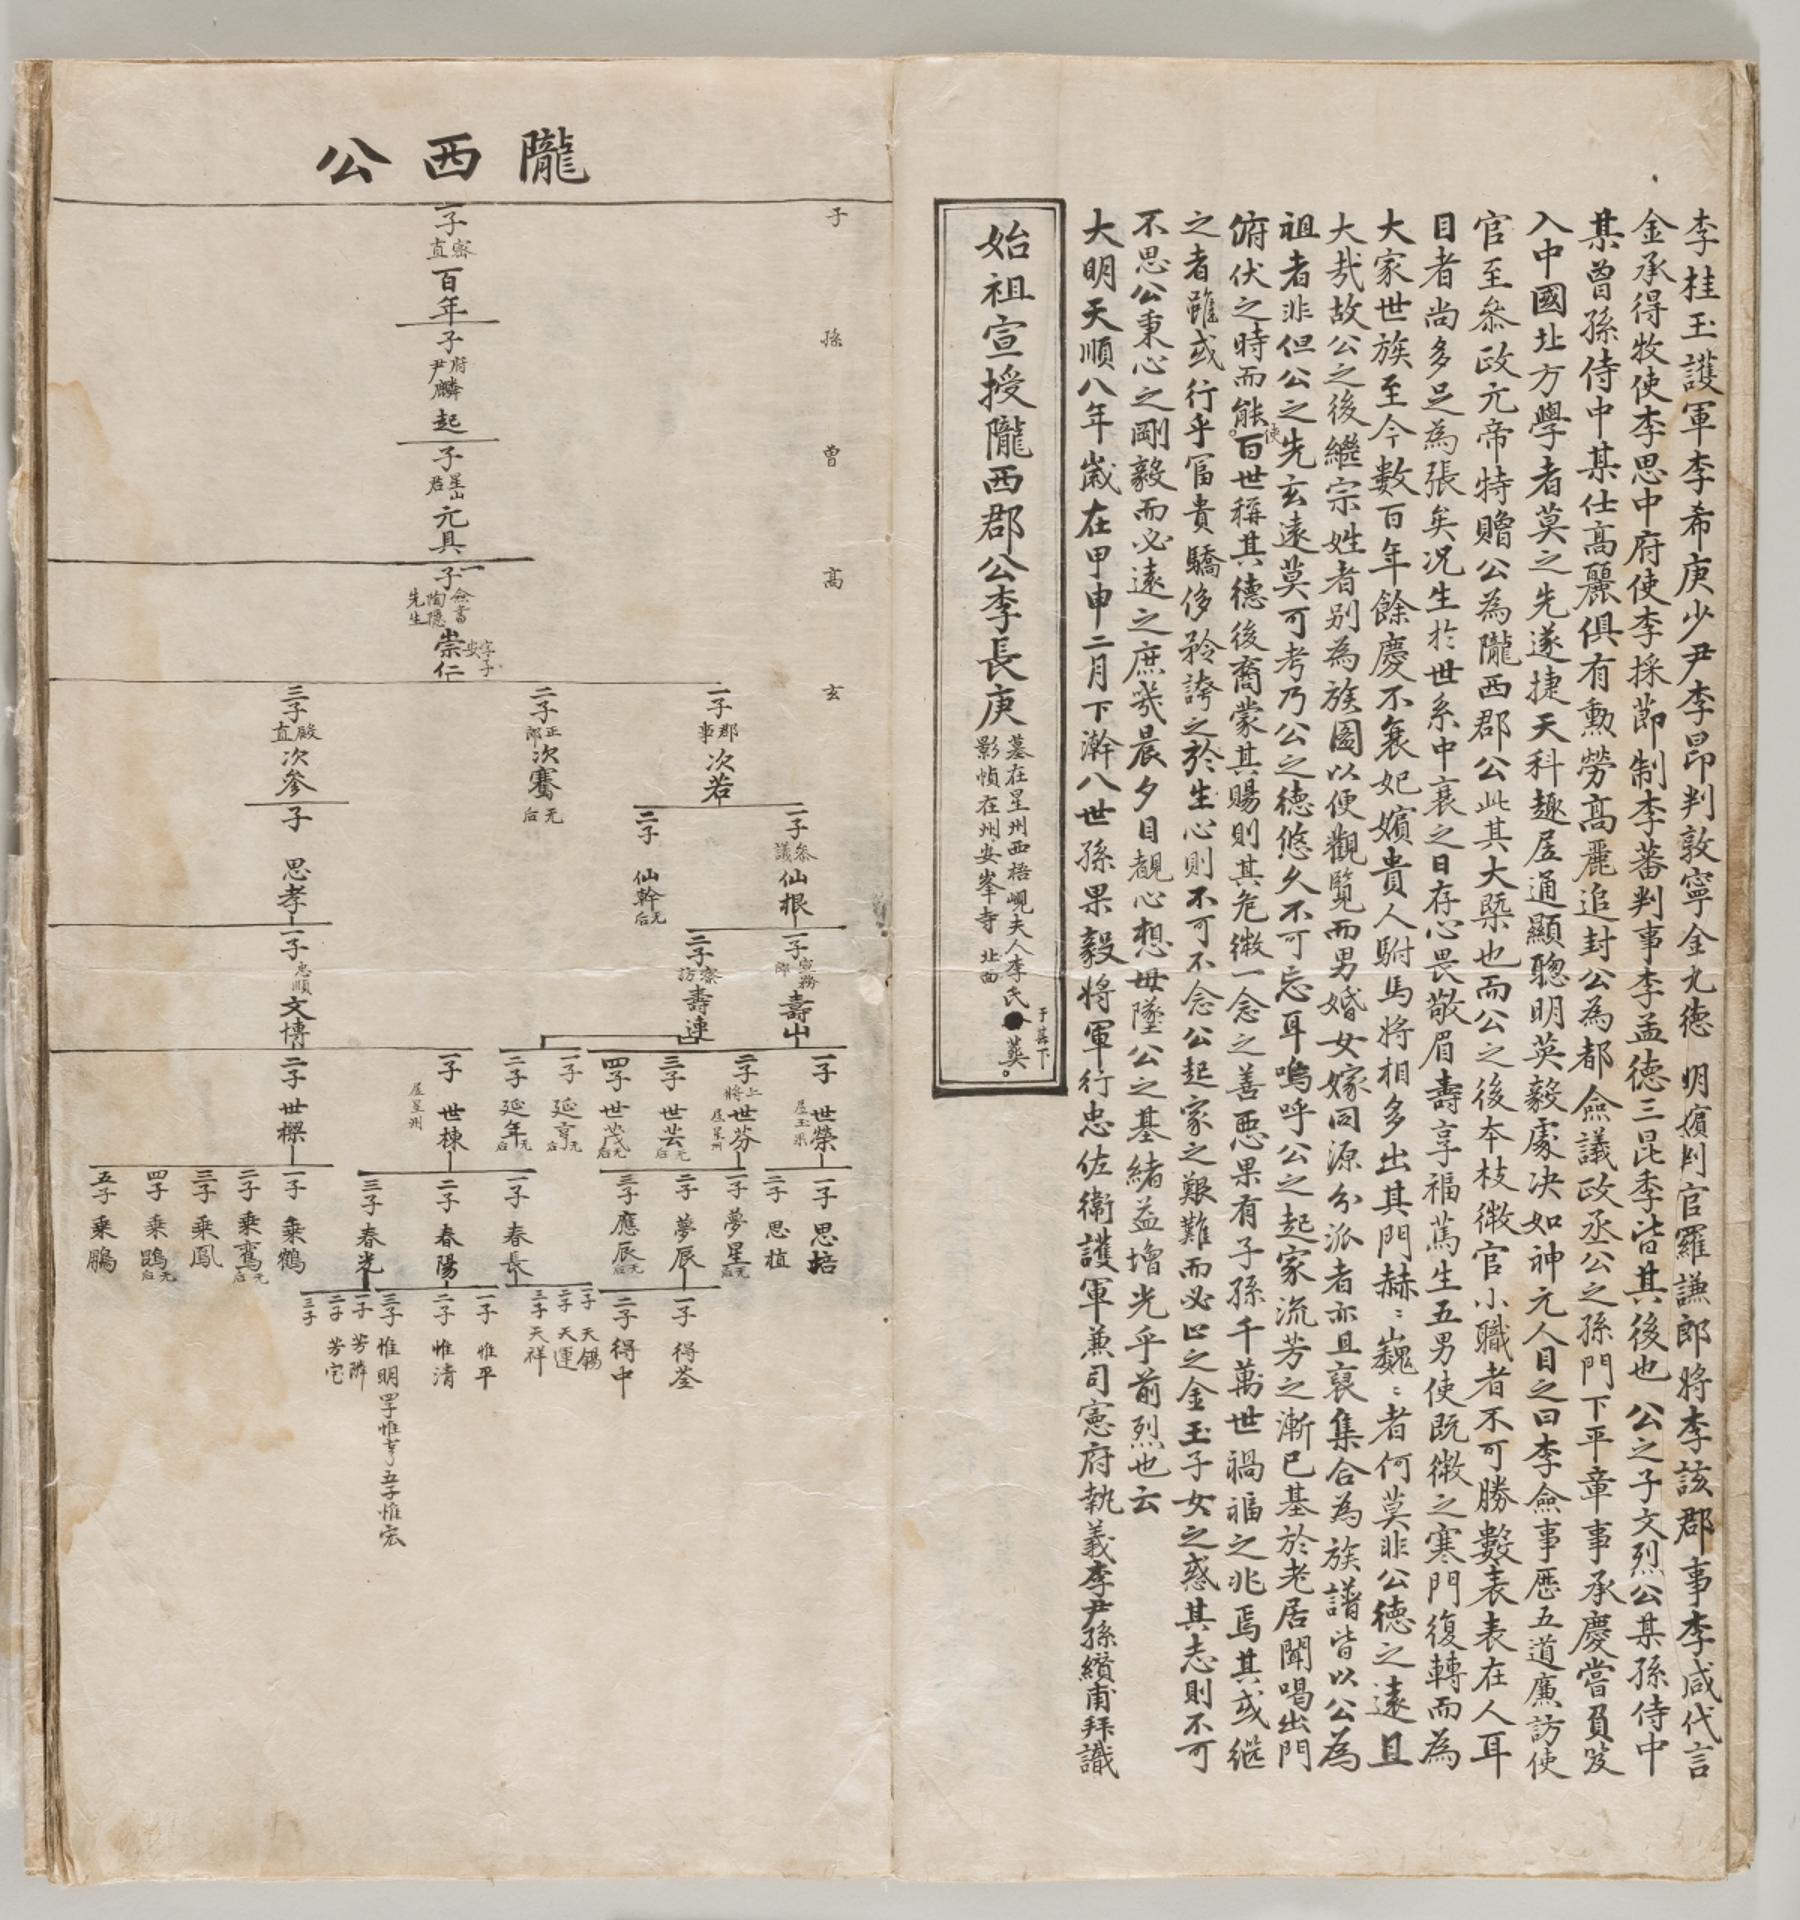 李桂玉護軍李希庚少尹李昂判敦寧金九德 明嬪判官羅謙郎將李該郡事李咸代言
金承得牧使李思中府使李採節制李蕃判事李孟德三昆季皆其後也 公之子文烈公某孫侍中
某曾孫侍中某仕高麗俱有勳勞高麗追封公為都僉議政丞公之孫門下平章事承慶嘗負笈
入中國北方學者莫之先遂捷天科趣居通顯聰明英毅處決如神元人目之曰李僉事歷五道廉訪使
官至叅政元帝特贈公為隴西郡公此其大槩也而公之後本枝微官小職者不可勝數表表在人耳
目者尚多足為張矣况生於世系中衰之日存心畏敬眉壽享福篤生五男使既微之寒門復轉而為
大家世族至今數百年餘慶不衰妃嬪貴人駙馬將相多出其門赫〻巍〻者何莫非公德之遠且
大㦲故公之後繼宗姓者别為族圖以便觀覽而男婚女嫁同源分派者亦且裒集合為族譜皆以公為
祖者非但公之先玄遠莫可考乃公之德悠久不可忘耳嗚呼公之起家流芳之漸已基於老居聞喝出門
俯伏之時而能使百世稱其德後裔蒙其賜則其危微一念之善惡果有子孫千萬世禍福之兆焉其或継
之者雖或行乎富貴驕侈矜誇之於生心則不可不念公起家之艱難而必以之金玉子女之惑其志則不可
不思公秉心之剛毅而必遠之庶幾晨夕目覩心想毋墜公之基緒益增光乎前烈也云
大明天順八年歲在甲申二月下澣八世孫果毅將軍行忠佐衛護軍兼司憲府執義李尹孫纘甫拜識
始祖宣授隴西郡公李長庚
墓在星州西梧峴夫人李氏葬于其下
影幀在州安峯寺 北面
隴西公
子
一子密直百年
孫
子府尹麟起
曾
子星山君元具
高
一子僉書陶隱先生崇仁字子安
玄
一子郡事次若
二子正郎次騫无后
三子殿直次參
一子叅議仙根
二子仙幹无后
子思孝
一子宣務郎壽山
二子察訪壽連
一子忠順文博
一子世榮居玉果
二子上將世芬居星州
三子世芸无后
四子世茂无后
一子延亨无后
二子延年无后
一子世棟居星州
二子世樑
一子思培
二子思植
一子夢星无后
二子夢辰
三子應辰无后
一子春長
二子春陽
三子春光
一子乘鶴
二子乘鸞无后
三子乘鳳
四子乘鵾无后
五子乘鵬
一子得荃
二子得中
一子天錫
二子天運
三子天祥
一子惟平
二子惟清
三子惟明四子惟亨五子惟宏
一子芳隣
二子芳宅
三子